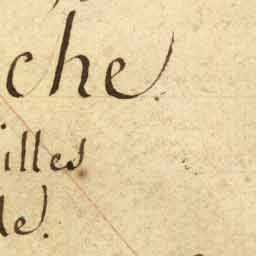 che.
illes
de.